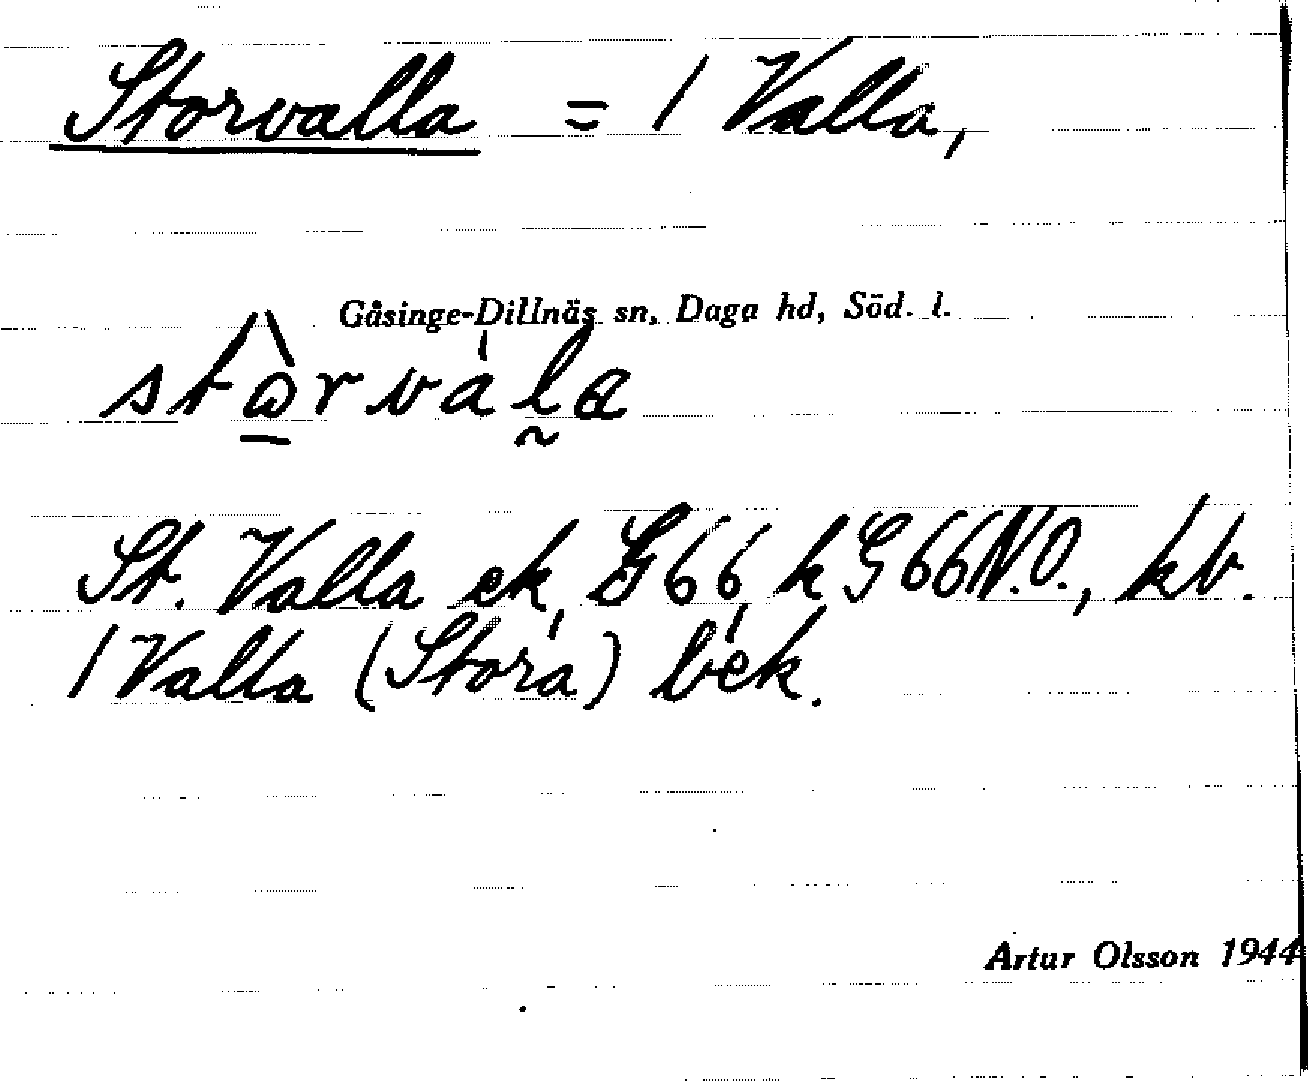 Storvalla = 1 Valla,
Gåsinge-Dillnäs sn, Daga hd, Söd. l.
stòrvála
St. Valla ek, G 66, h G 66 N.O., kb.
1 Valla (Stora) bek.
Artur Olsson 1944